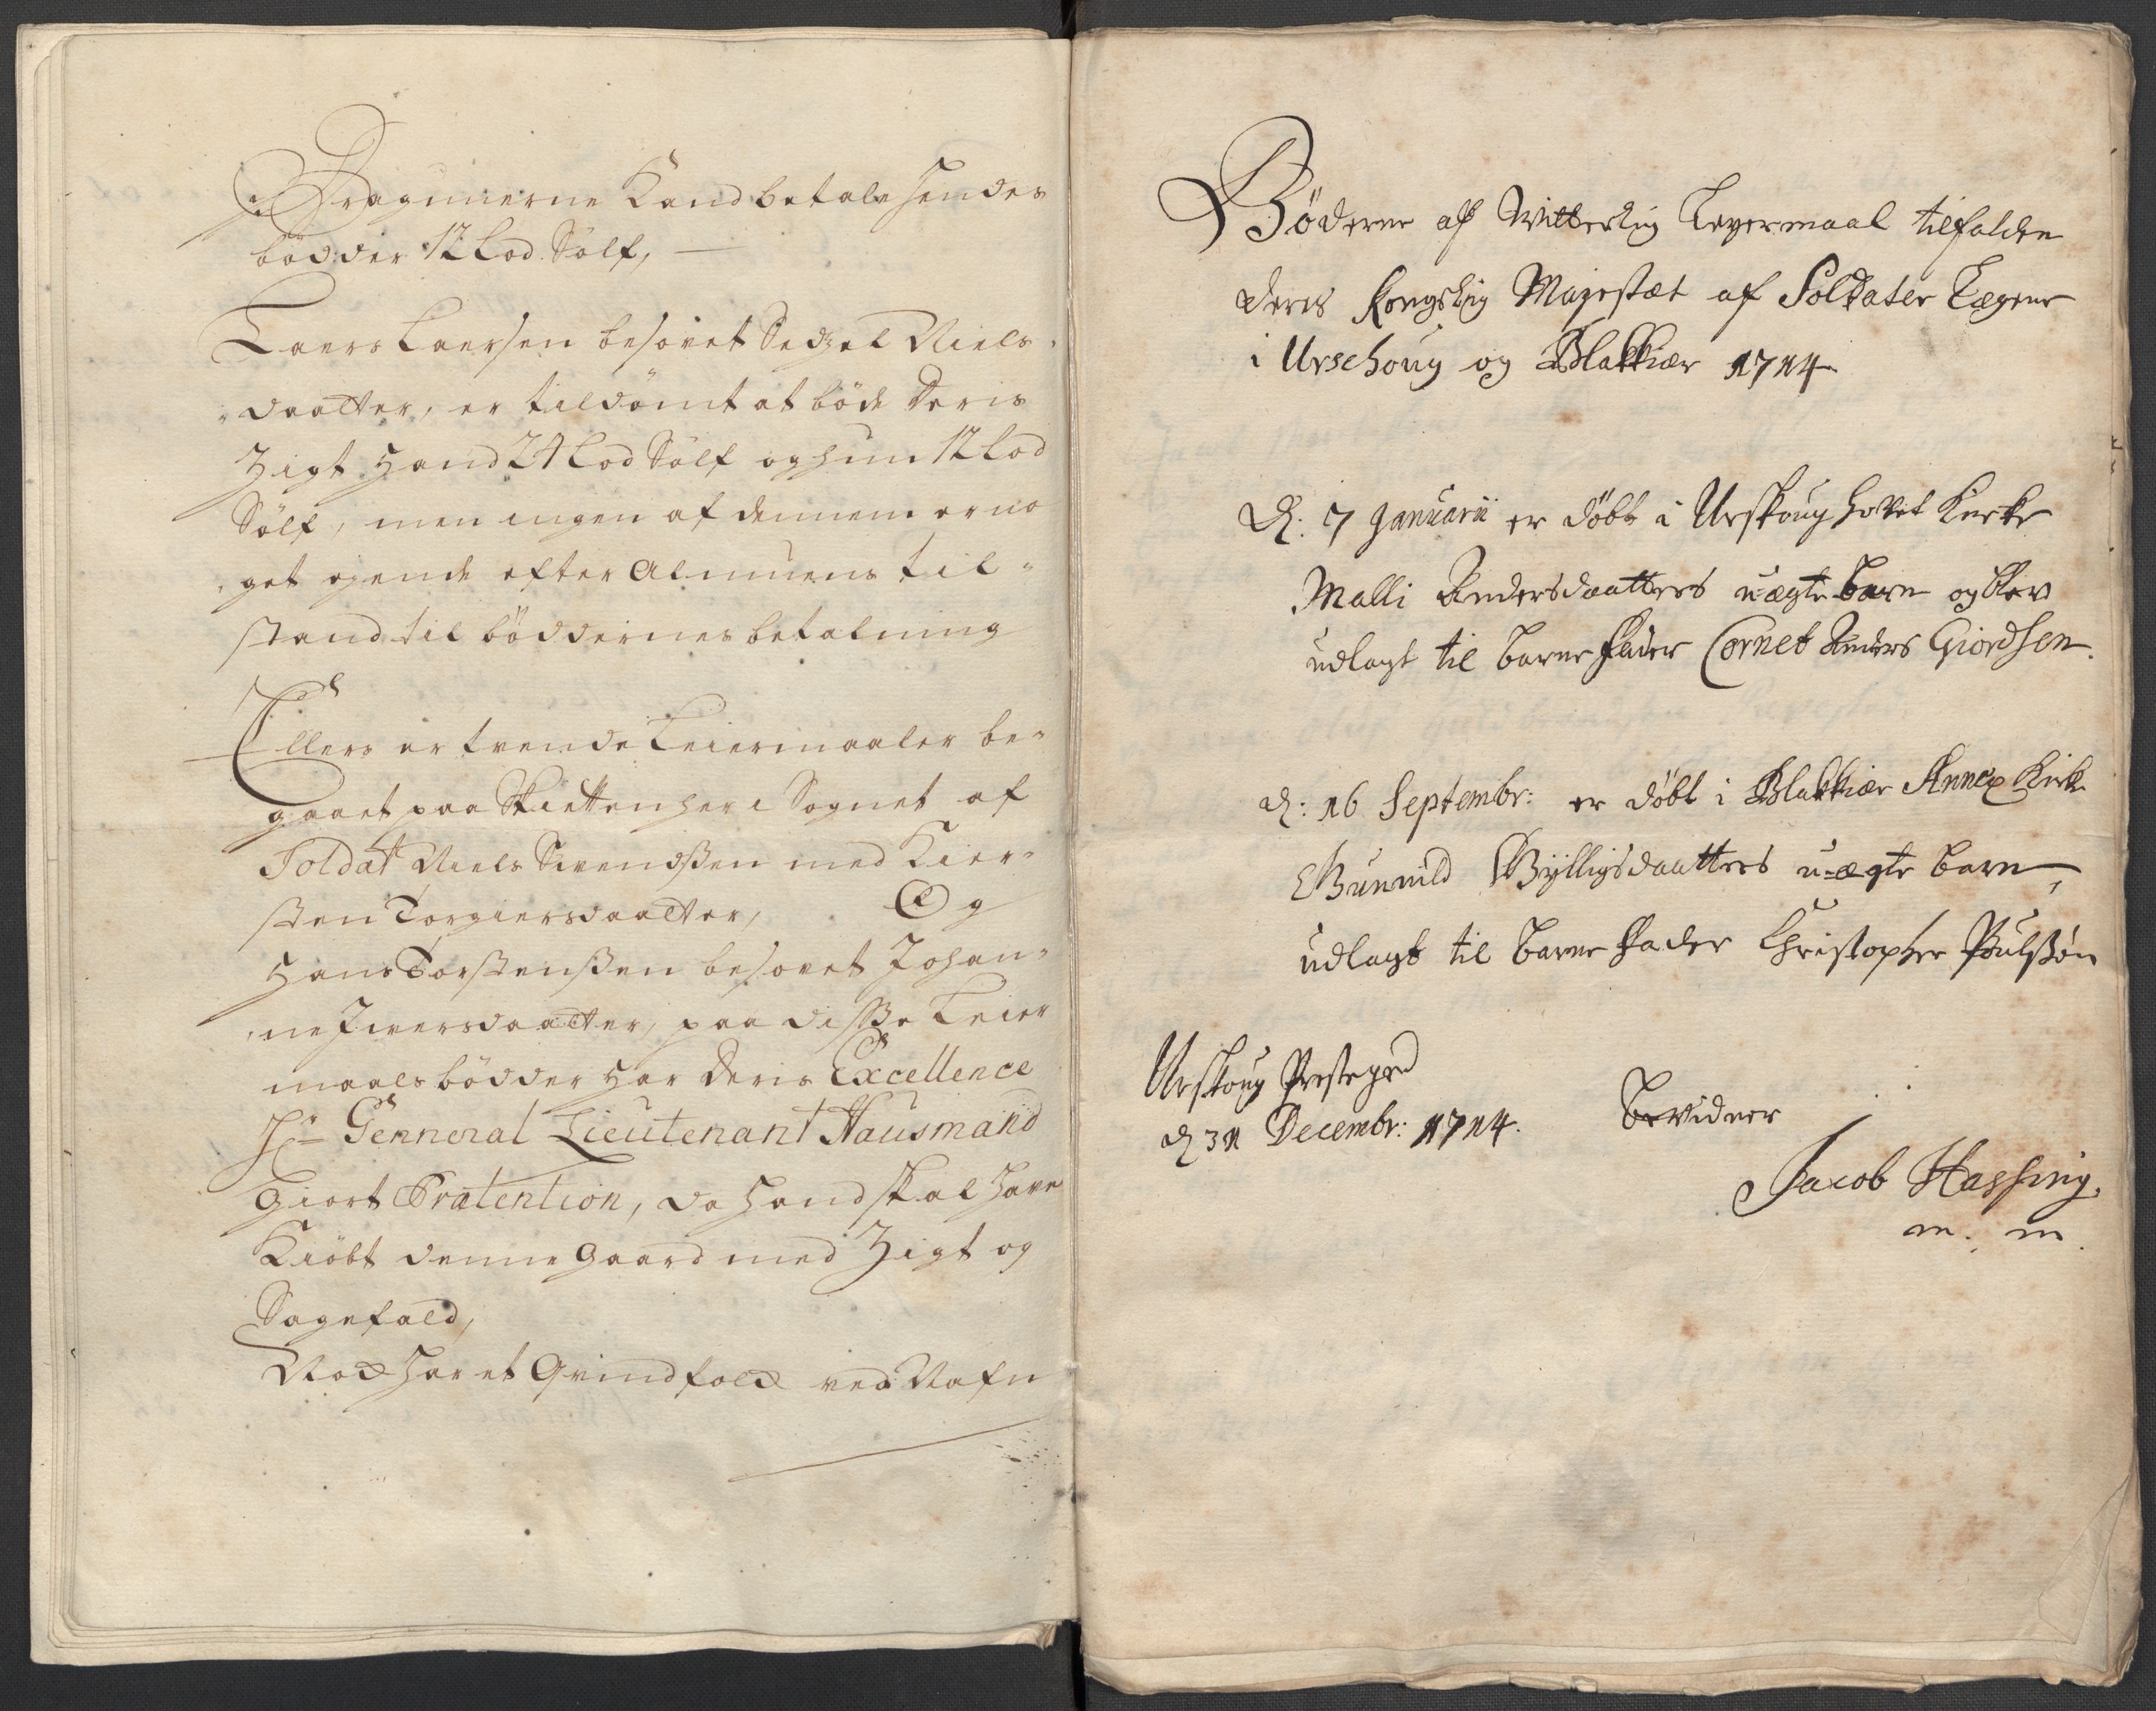 Dragunerne Kand betale hendes
bødder 12 Lod Sølf,
Laers Laersen besovet Sedzel Niels
daatter, er tildømt at bøde Deris
Zigt Hand 24 Lod Sølf og hun 12 Lod
Sølf, men ingen af dennem er no
get ejende efter Almuens til-
stand til bøddernes betalning
Ellers er tvende Leiermaaler be-
gaaet paa Skietten her i Sognet af
Soldat Niels Svendßen med Kier-
sten Torgiersdaatter, Og
Hans Torstenßen besovet Johan-
ne Iversdaatter, paa diße Leier
maals bødder har Deris Excellence
Hr Genneral Lieutenant Hausmand
Giort Prætention, da hand skal have
Kiøbt denne Gaard med Zigt og
Sagefald,
Nock har et Qvindfolck ved Nafn
Bøderne af Witterlig Leyermaal tilfalden
deris Kongelig Majestæt af Soldater Lægene
i Urschoug og Blakkiær 1714
D: 7 Januarii er døbt i Urskoug Hovet Kirke
Malli Andersdaatters u-ægte barn og blev
udlagt til barne fader Cornet Anders Giordsen.
d: 16 Septembr: er døbt i Blakkiær Annex Kirke
Gunnild Gylligsdaatters u-ægte barn,
udlagt til barne fader Christopher Pulßøn
Urskoug Prestegrd
d 31 Decembr: 1714. bevidner
Jacob Hassing.
m. m.